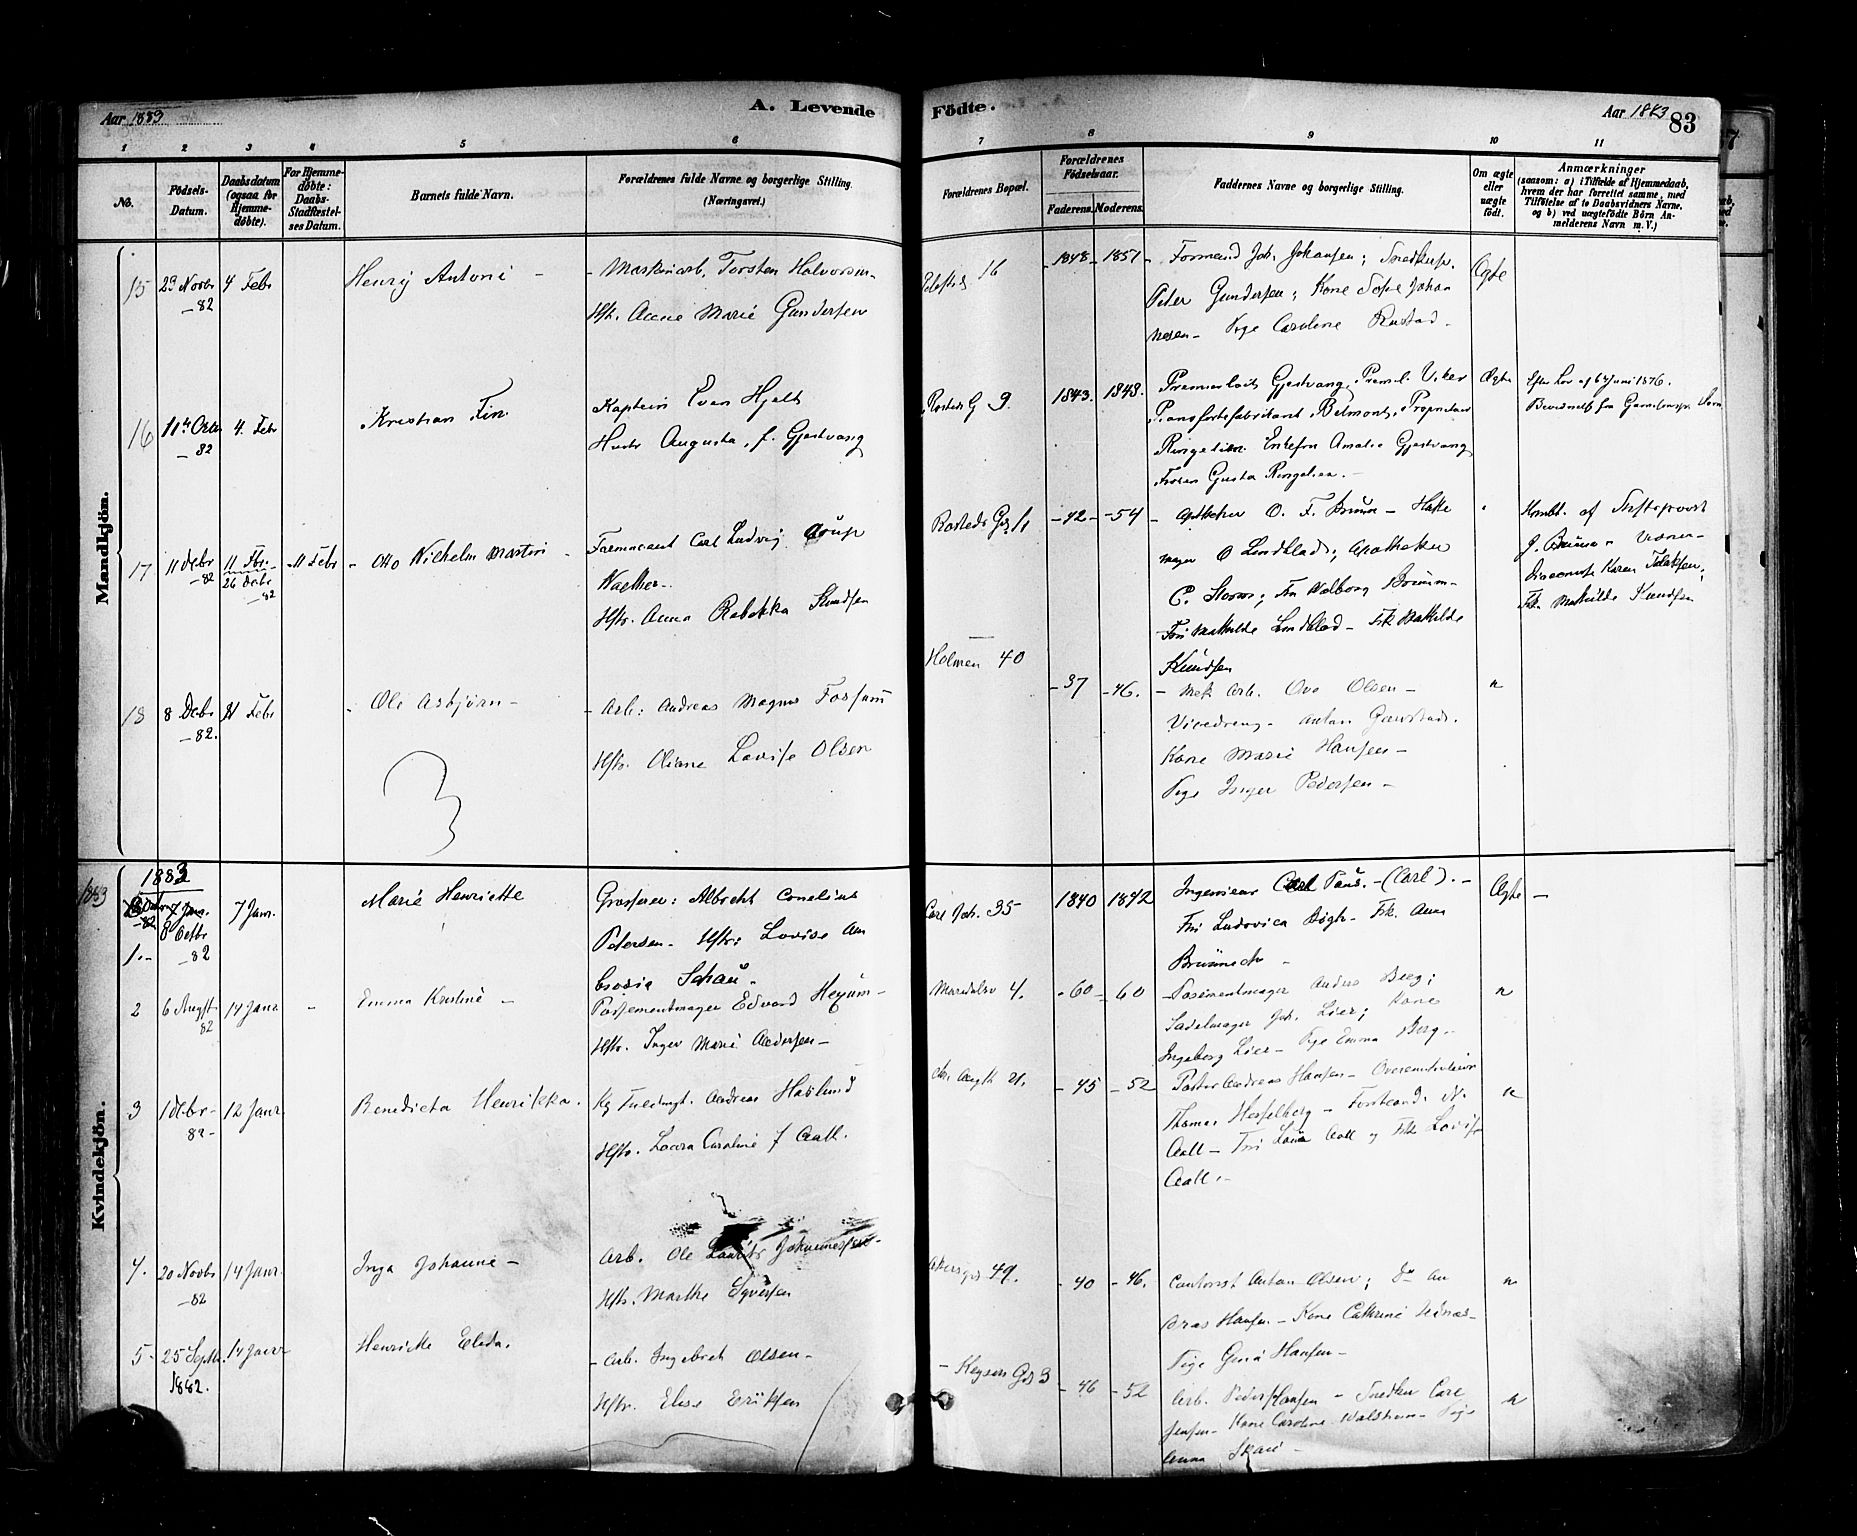 A. Levende
Födte.
Aar 1883
Aar 1883
83
1 2 3 4 5 6 7 8 9 10 11
No.
Födsels-
Datum.
Daabsdatum
(ogsaa for
Hjemme-
döbte).
For Hjemme-
döbte:
Daabs-
Stadfæstel-
ses Datum.
Barnets fulde Navn.
Forældrenes fulde Navne og borgerlige Stilling.
(Næringsvei.)
Forældrenes Bopæl.
Forældrenes
Födselsaar.
Faderens.
Moderens.
Faddernes Navne og borgerlige Stilling.
Om ægte
eller
uægte
födt.
Anmærkninger
(saasom: a) i Tilfælde af Hjemmedaab,
hvem der har forrettet samme, med
Tilföielse af to Daabsvidners Navne,
og b) ved uægtefödte Börn An-
melderens Navn m.V.)
Mandkjön.
15
29 Novbr
82
4 Febr
Henry Antoni
Maskinarb. Torsten Halvorsen
Hstr. Anne Marie Gundersen
16
1848 - 1857
Formand Joh. Johansen; Snedkersv.
Peter Gundersen; Kone Sofie Johan
nesen - Pige Caroline Rustad.
Ægte
16
82
4. Febr
Kristian Fin
Kaptein Even Hjelt
Hustr Augusta, f. Gjestvang
9.
1843. 1848.
Gjestvang, Preml.
Pianofortefabrikant
Ringelien. Enkefru Amalie Gjestvang
Frøken Gusta Ringelien.
Ægte
Efter Lov af 6te Juni 1876.
17
11 Debr
82
11 Fbr.
26 Debr
82
11 Febr
Otto Wilhelm Martin
Carl Ludvig
Walther
Hstr. Anna Rebekka Knudsen
Rosteds Gd 11
-42- -54
Apotheker O. F. Bruun - Hatte
mager O Lindblad; Apotheker
C. Storm; Fru Valborg Bruun
Fru Mathilde Lindblad - Frk Mathilde
Knudsen
Hmbt. af Stiftsprovst
J. Bruun - Vidner
Diaconisse Karen
Frk. Mathilde Knudsen
18
8 Debr
82.
11 Febr
Ole Asbjørn
Arb: Andreas Magnus Fossum
Hstr. Oliane Lovise Olsen
Holmen 40
-37 -46.
Mek Arb. Ove Olsen -
Anton
Kone Marie Hansen -
Pige Inger Pedersen -
Kvindekjön.
1883
1883
1.
8 Octbr
82
7 Jan.
Marie Henriette
Grosserer: Albrecht Cornelius
Petersen - Hstr: Lovise Am
brosia Schou.
Carl Joh. 35
1840 1842
Ingenieur Carl Paus. - (Carl). -
Fru Ludovica Bøgh - Frk. Anna
Ægte -
2
6 Augst
82
14 Janr
Emma Kristine
Possementmager Edvard
Hstr. Inger Marie Andersen -
Maridalsv 4.
-60- 60
Possementmager Anders Berg;
Sadelmager Joh. Lier; Kone
Ingeborg Lier - Pige Emma Berg.
3
1 Debr
82
12 Janr.
Benedicta Henrikka.
Andreas Haslund
Hstr. Laura Caroline f Aall.
-45 -52
Pastor Andreas Hansen -
Thomas Hesselberg - Forstcand. N.
Aall - Fru Aall og Frk Lovise
Aall.
4.
20 Novbr
82
14 Janr.
Inga Johanne -
Arb. Ole Laurits Johannessen
Hstr. Marthe Syversen
Akersgd 49.
-40 -46.
Contorist Anton Olsen; Do An
dreas Hansen. - Kone Cathrine
Pige Gina Hansen -
5
25 Septbr
1882.
14 Janr
Henriette Elida.
- Arb. Ingebret Olsen -
Hstr. Elise Eriksen
Keysers Gd 3
-46 -52
Arb. Peder Hansen - Snedker Carl
Jensen - Kone Caroline Walstrøm - Pige
Anna Skau -